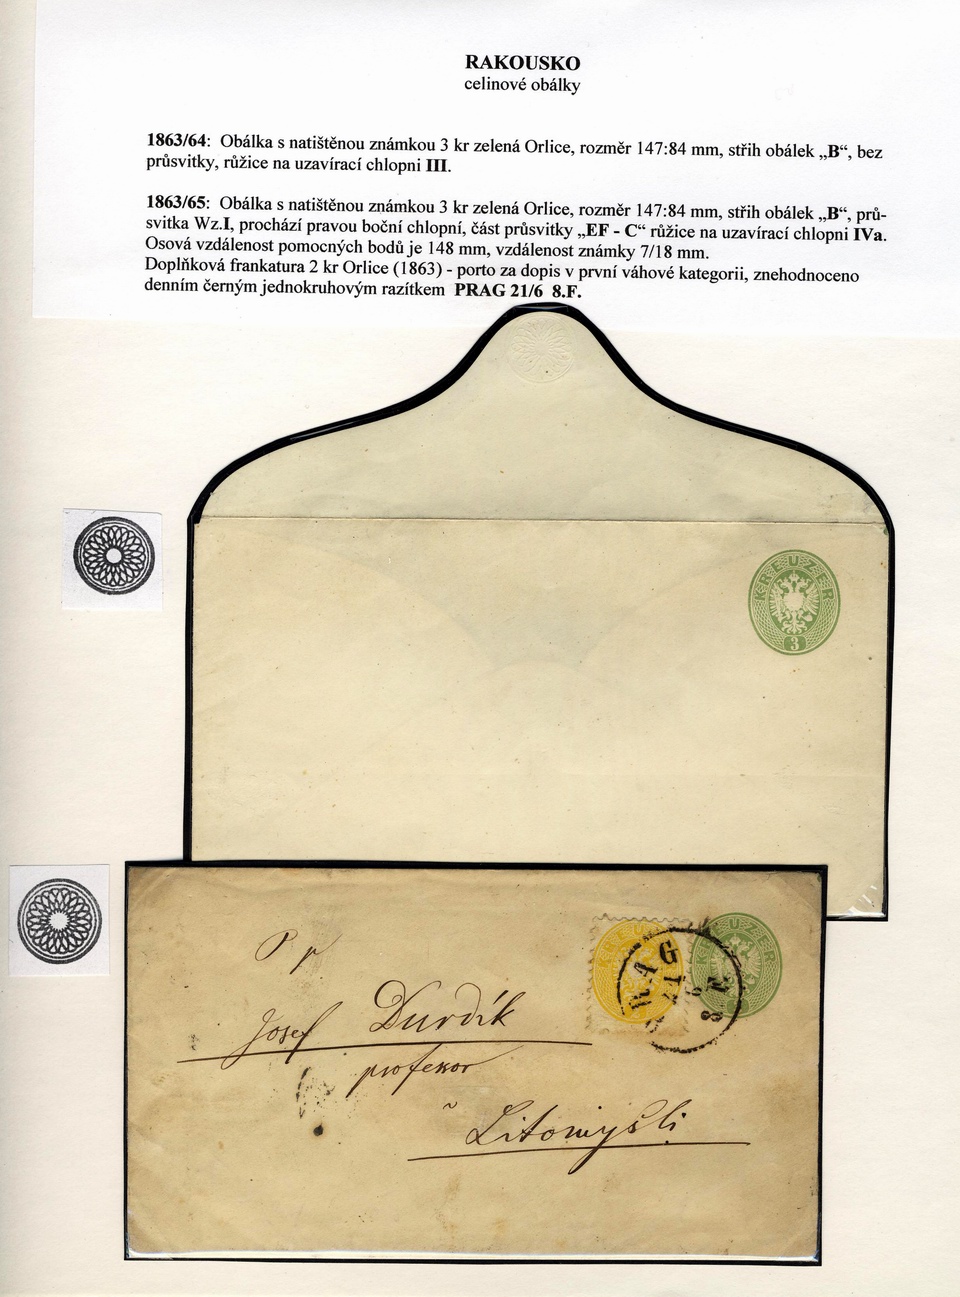 RAKOUSKO
celinové obálky
1863/64: Obálka s natištěnou známkou 3 kr zelená Orlice, rozměr 147:84 mm, střih obálek „B“, bez
průsvitky, růžice na uzavírací chlopni III.
1863/65: Obálka s natištěnou známkou 3 kr zelená Orlice, rozměr 147:84 mm, střih obálek „B“, prů-
svitka Wz.I, prochází pravou boční chlopní, část průsvitky „EF - C“ růžice na uzavírací chlopni IVa.
Osová vzdálenost pomocných bodů je 148 mm, vzdálenost známky 7/18 mm.
Doplňková frankatura 2 kr Orlice (1863) - porto za dopis v první váhové kategorii, znehodnoceno
denním černým jednokruhovým razítkem PRAG 21/6 8.F.
KREUZER
3
P p
Josef Durdík
profesor
v Litomyšli